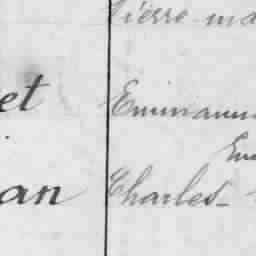 Pierre ma
et Emmanu
Em
an Charles-